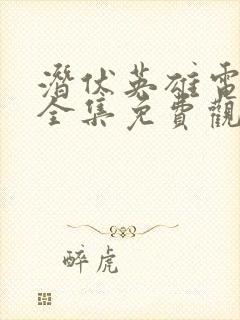 潛伏英雄電
全集免費觀
醉虎